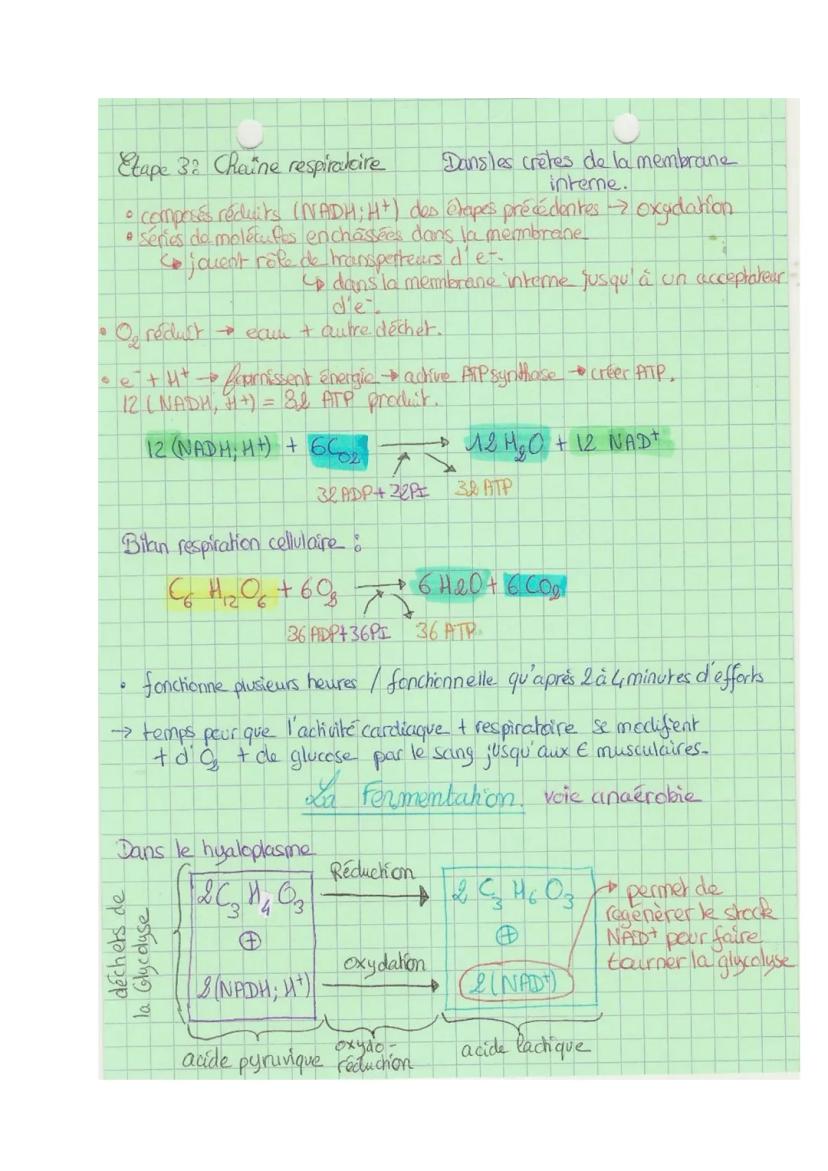 Etape 3: Chaîne respiratoire Dans les crêtes de la membrane
interne.
• composés réduits (NADH; H+) des étapes précédentes → oxydation
• séries de molécules enchâssées dans la membrane
↳ jouent rôle de transporteurs d'e-.
↳ dans la membrane interne jusqu'à un accepteur
d'e-.
• O2 réduit → eau + autre déchet.
• e- + H+ → fournissent énergie → active ATP synthase → créer ATP.
12 (NADH, H+) = 32 ATP produit.
12 (NADH; H+) + 6CO2 → 12 H2O + 12 NAD+
32 ADP + 32Pi 32 ATP
Bilan respiration cellulaire :
C6 H12 O6 + 6O2 → 6 H2O + 6 CO2
36 ADP + 36Pi 36 ATP
• fonctionne plusieurs heures / fonctionnelle qu'après 2 à 4 minutes d'efforts
→ temps pour que l'activité cardiaque + respiratoire se modifient
+ d'O2 + de glucose par le sang jusqu'aux € musculaires.
La Fermentation. voie anaérobie
Dans le hyaloplasme
déchets de
la Glycolyse
2C3 H4 O3
⊕
2(NADH; H+)
acide pyruvique
Réduction
oxydation
oxydo-
réduction
2 C3 H6 O3
⊕
2(NAD+)
acide lactique
→ permet de
regénérer le stock
NAD+ pour faire
tourner la glycolyse